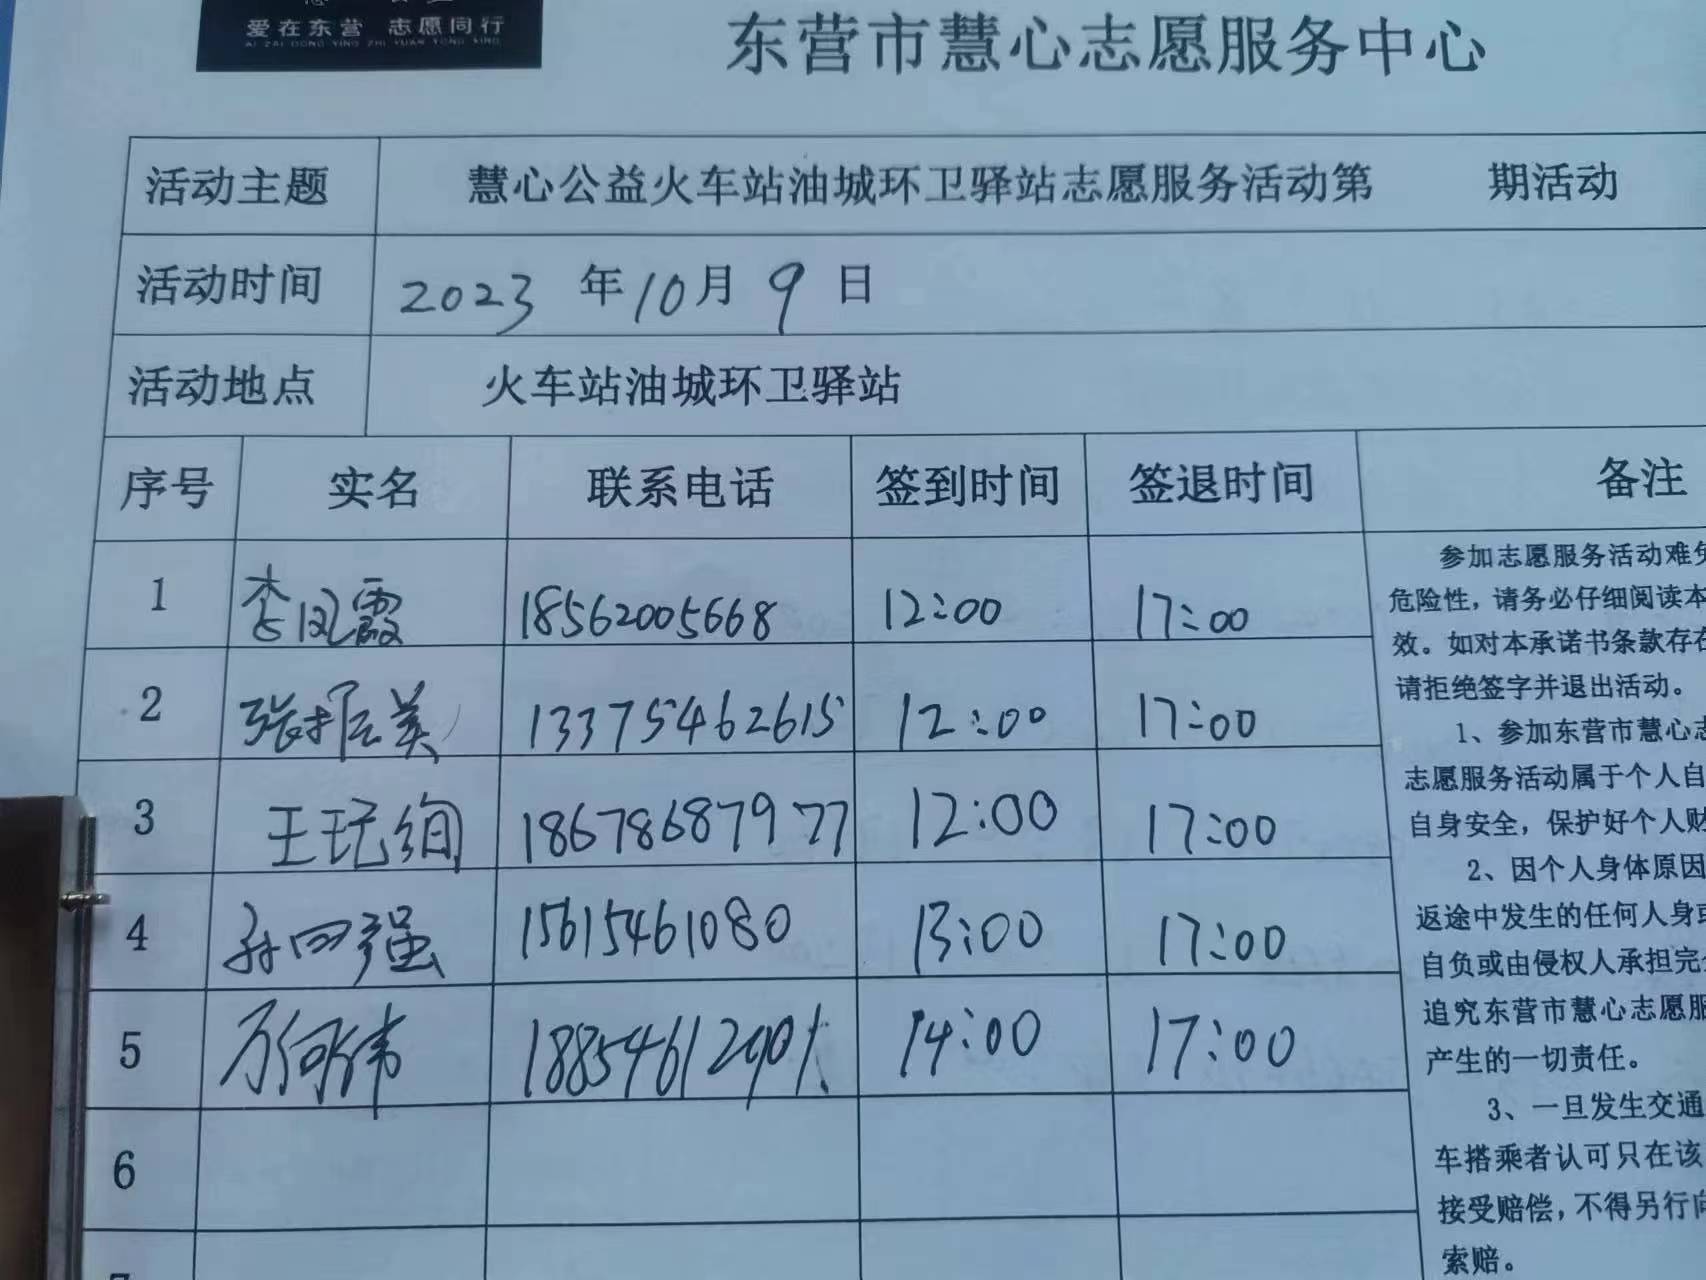 爱在东营 志愿同行
AI ZAI DONG YING ZHI YUAN TONG XING
东营市慧心志愿服务中心
活动主题 慧心公益火车站油城环卫驿站志愿服务活动第 期活动
活动时间 2023 年 10 月 9 日
活动地点 火车站油城环卫驿站
序号 实名 联系电话 签到时间 签退时间 备注
1 李凤霞 18562005668 12:00 17:00
2 张振美 13375462615 12:00 17:00
3 王玩绚 18678687977 12:00 17:00
4 孙四强 15615461080 13:00 17:00
5 万何伟 14:00 17:00
6
参加志愿服务活动难免
危险性，请务必仔细阅读本
效。如对本承诺书条款存在
请拒绝签字并退出活动。
1、参加东营市慧心志
志愿服务活动属于个人自
自身安全，保护好个人财
2、因个人身体原因
返途中发生的任何人身或
自负或由侵权人承担完全
追究东营市慧心志愿服
产生的一切责任。
3、一旦发生交通
车搭乘者认可只在该
接受赔偿，不得另行向
索赔。